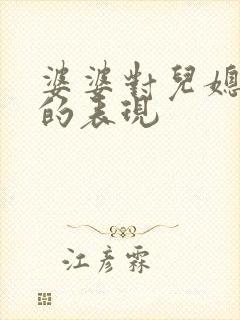 婆婆對兒媳
的表現
江彦霖